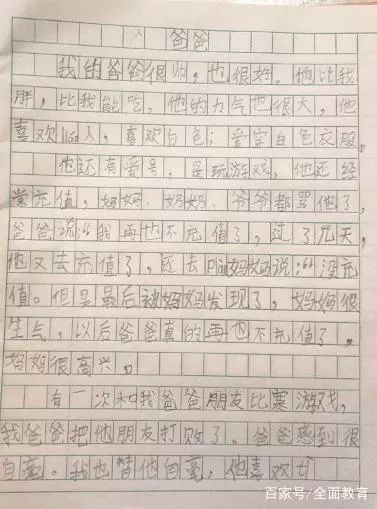 爸爸
我的爸爸很帅，也很好。他比我
胖，比我能吃，他的力气也很大，他
喜欢 人，喜欢白色；爱穿白色衣服。
他还有爱号，是玩游戏，他还经
常充值，妈妈、妈妈、爷爷都骂他了，
爸爸说："我再也不充值了，过了几天，
他又去充值了，还去pian妈妈说："没充
值。但是最后被妈妈发现了，妈妈很
生气，以后爸爸真的再也不充值了。
妈妈很高兴。
有一次和我爸爸朋友比赛游戏，
我爸爸把他朋友打败了。爸爸感到很
自豪。我也替他自豪，他喜欢
百家号/全面教育